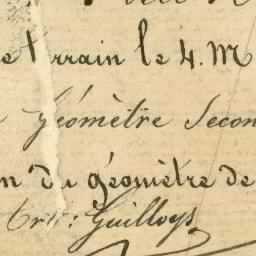 terrain le 4. M
Géomètre Secon
n du géomètre de
Guilloys